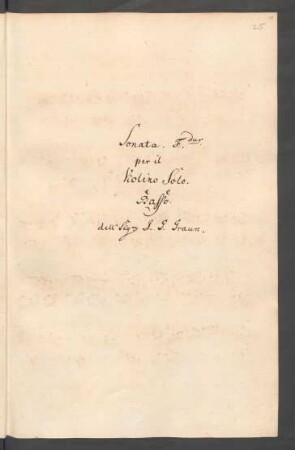 25
Sonata. F. dur.
per il
Violino Solo.
e Basso.
dell Sigr J. G. Graun.